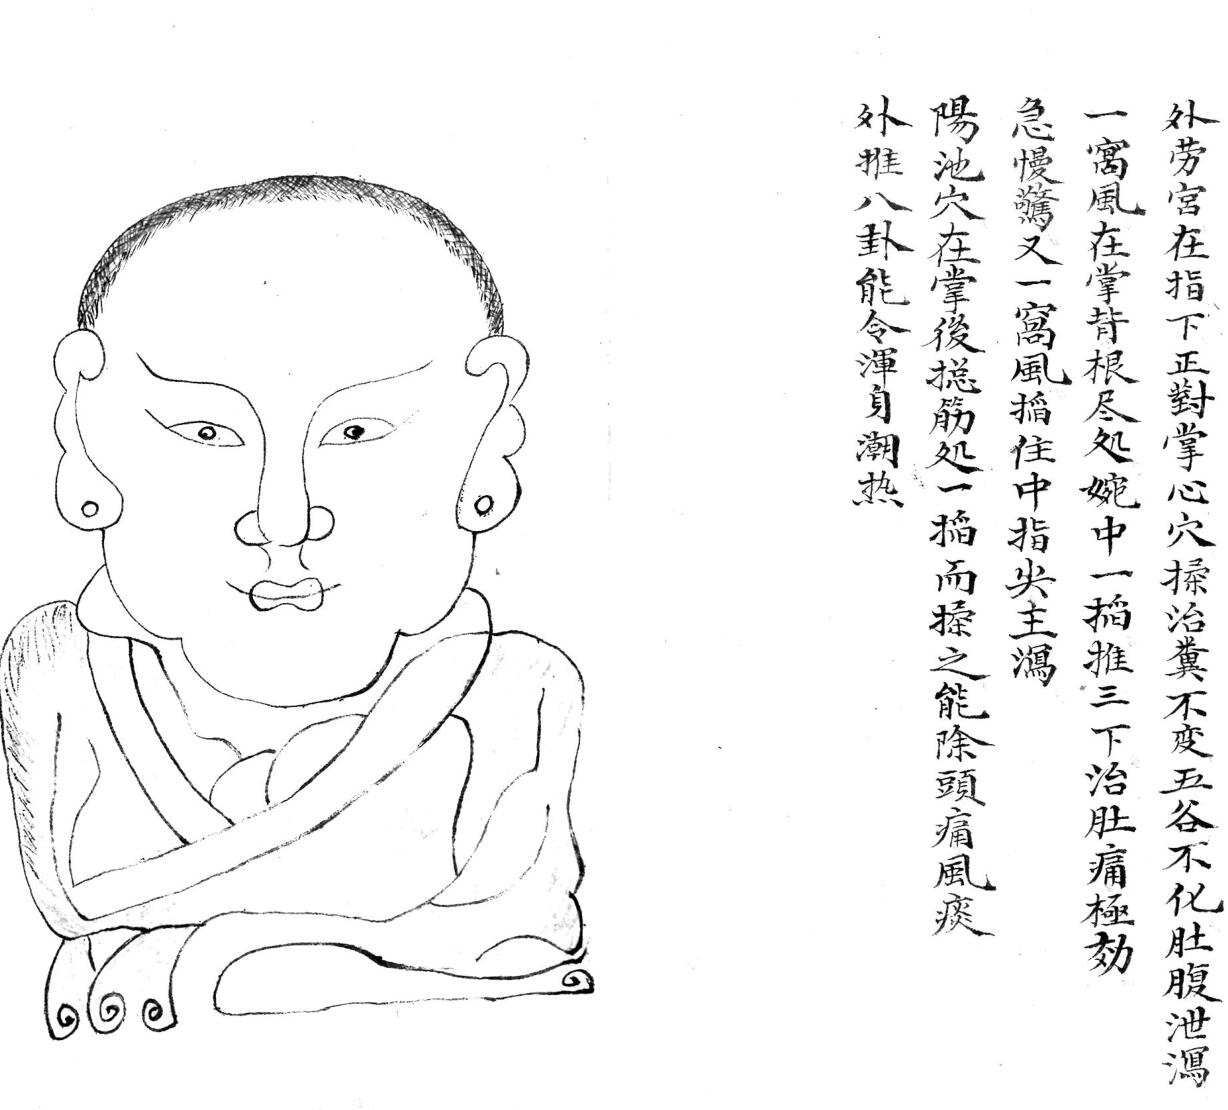 外劳宮在指下正對掌心穴揉治糞不変五谷不化肚腹泄瀉
一窩風在掌背根尽处婉中一搯推三下治肚痛極効
急慢驚又一窩風搯住中指尖主瀉
陽池穴在掌後捴筋处一搯而揉之能除頭痛風痰
外推八卦能令渾身潮热